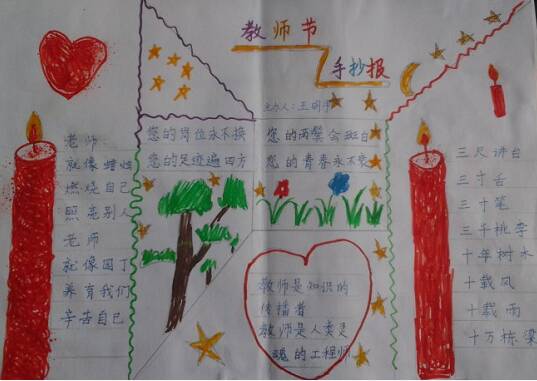 教师节
手抄报
主办人：王明宇
老师
就像蜡烛
燃烧自己
照亮别人
老师
就像园丁
养育我们
辛苦自己
您的岗位永不换
您的足迹遍四方
您的两鬓会斑白
您的青春永不衰
教师是知识的
传播者
教师是人类灵
魂的工程师
三尺讲台
三寸舌
三寸笔
三千桃李
十年树木
十载风
十载雨
十万栋梁